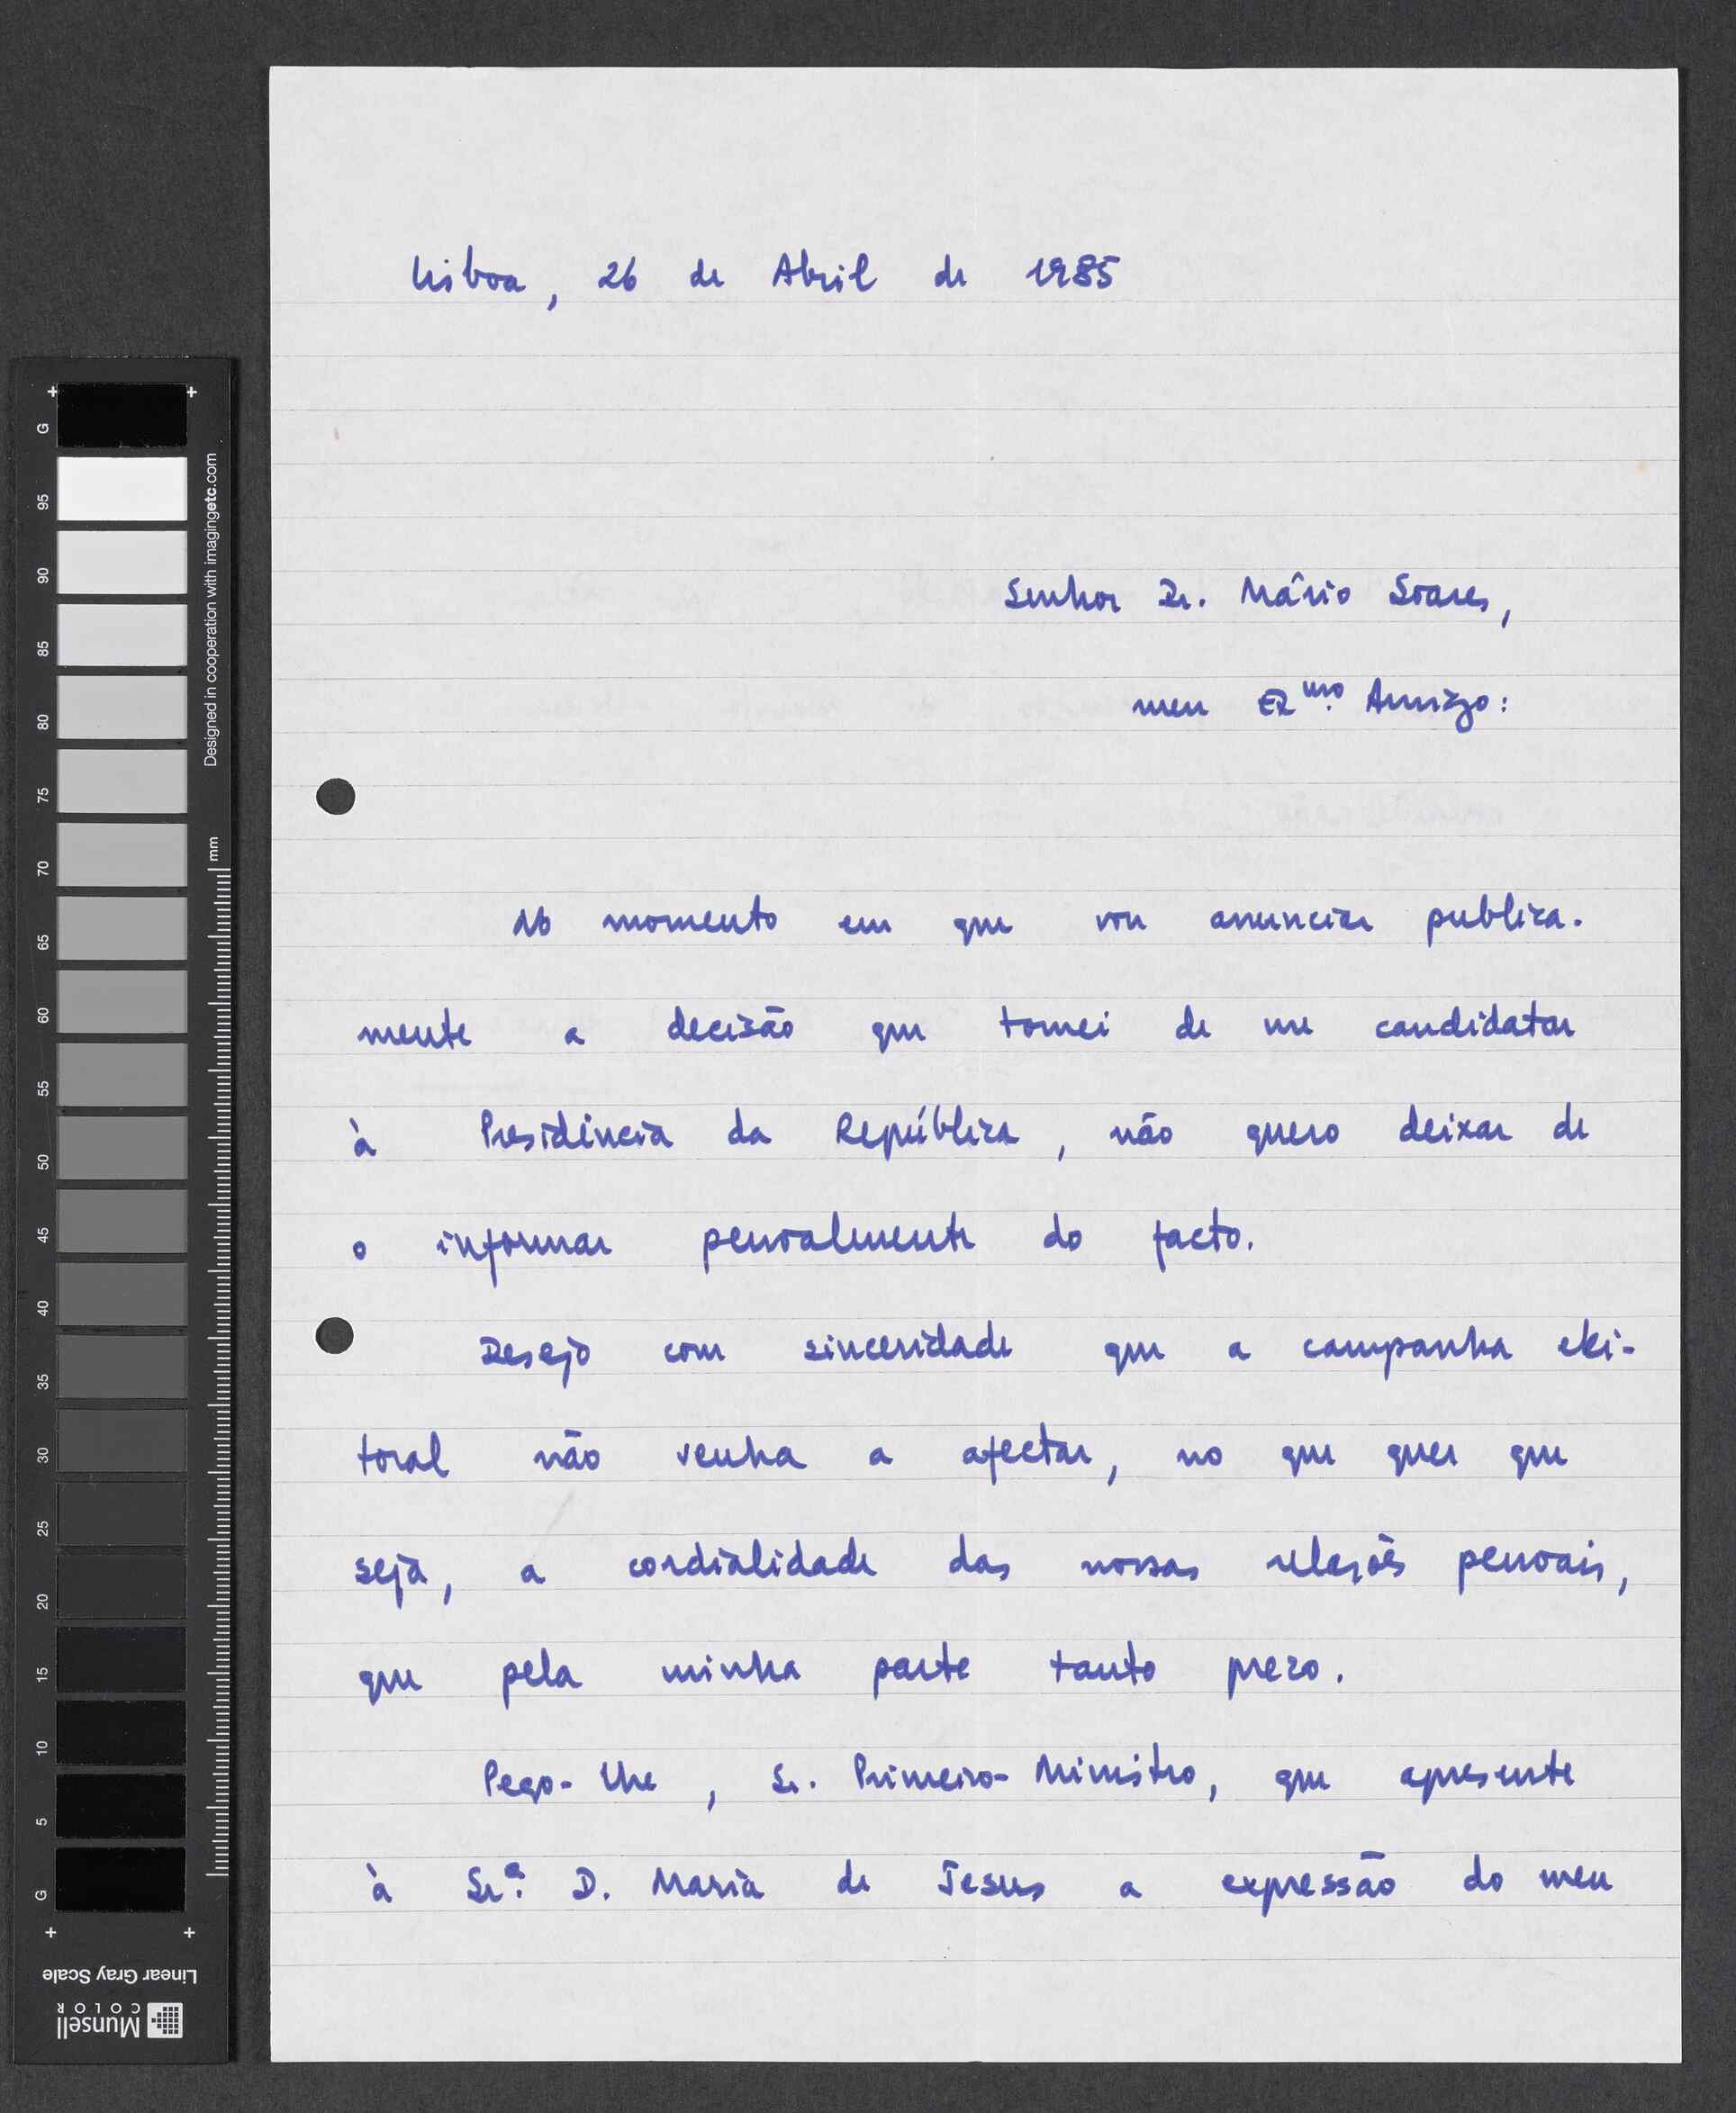 Lisboa, 26 de Abril de 1985
Senhor Dr. Mário Soares,
meu Exmo. Amigo:
No momento em que vou anunciar publica-
mente a decisão que tomei de me candidatar
à Presidência da República, não quero deixar de
o informar pessoalmente do facto.
Desejo com sinceridade que a campanha elei-
toral não venha a afectar, no que quer que
seja, a cordialidade das nossas relações pessoais,
que pela minha parte tanto prezo.
Peço-lhe, Sr. Primeiro-Ministro, que apresente
à Srª. D. Maria de Jesus a expressão do meu
G
95
90
85
80
75
70
65
60
55
50
45
40
35
30
25
20
15
10
5
G
Designed in cooperation with imagingetc.com
mm
Linear Gray Scale
Munsell
COLOR